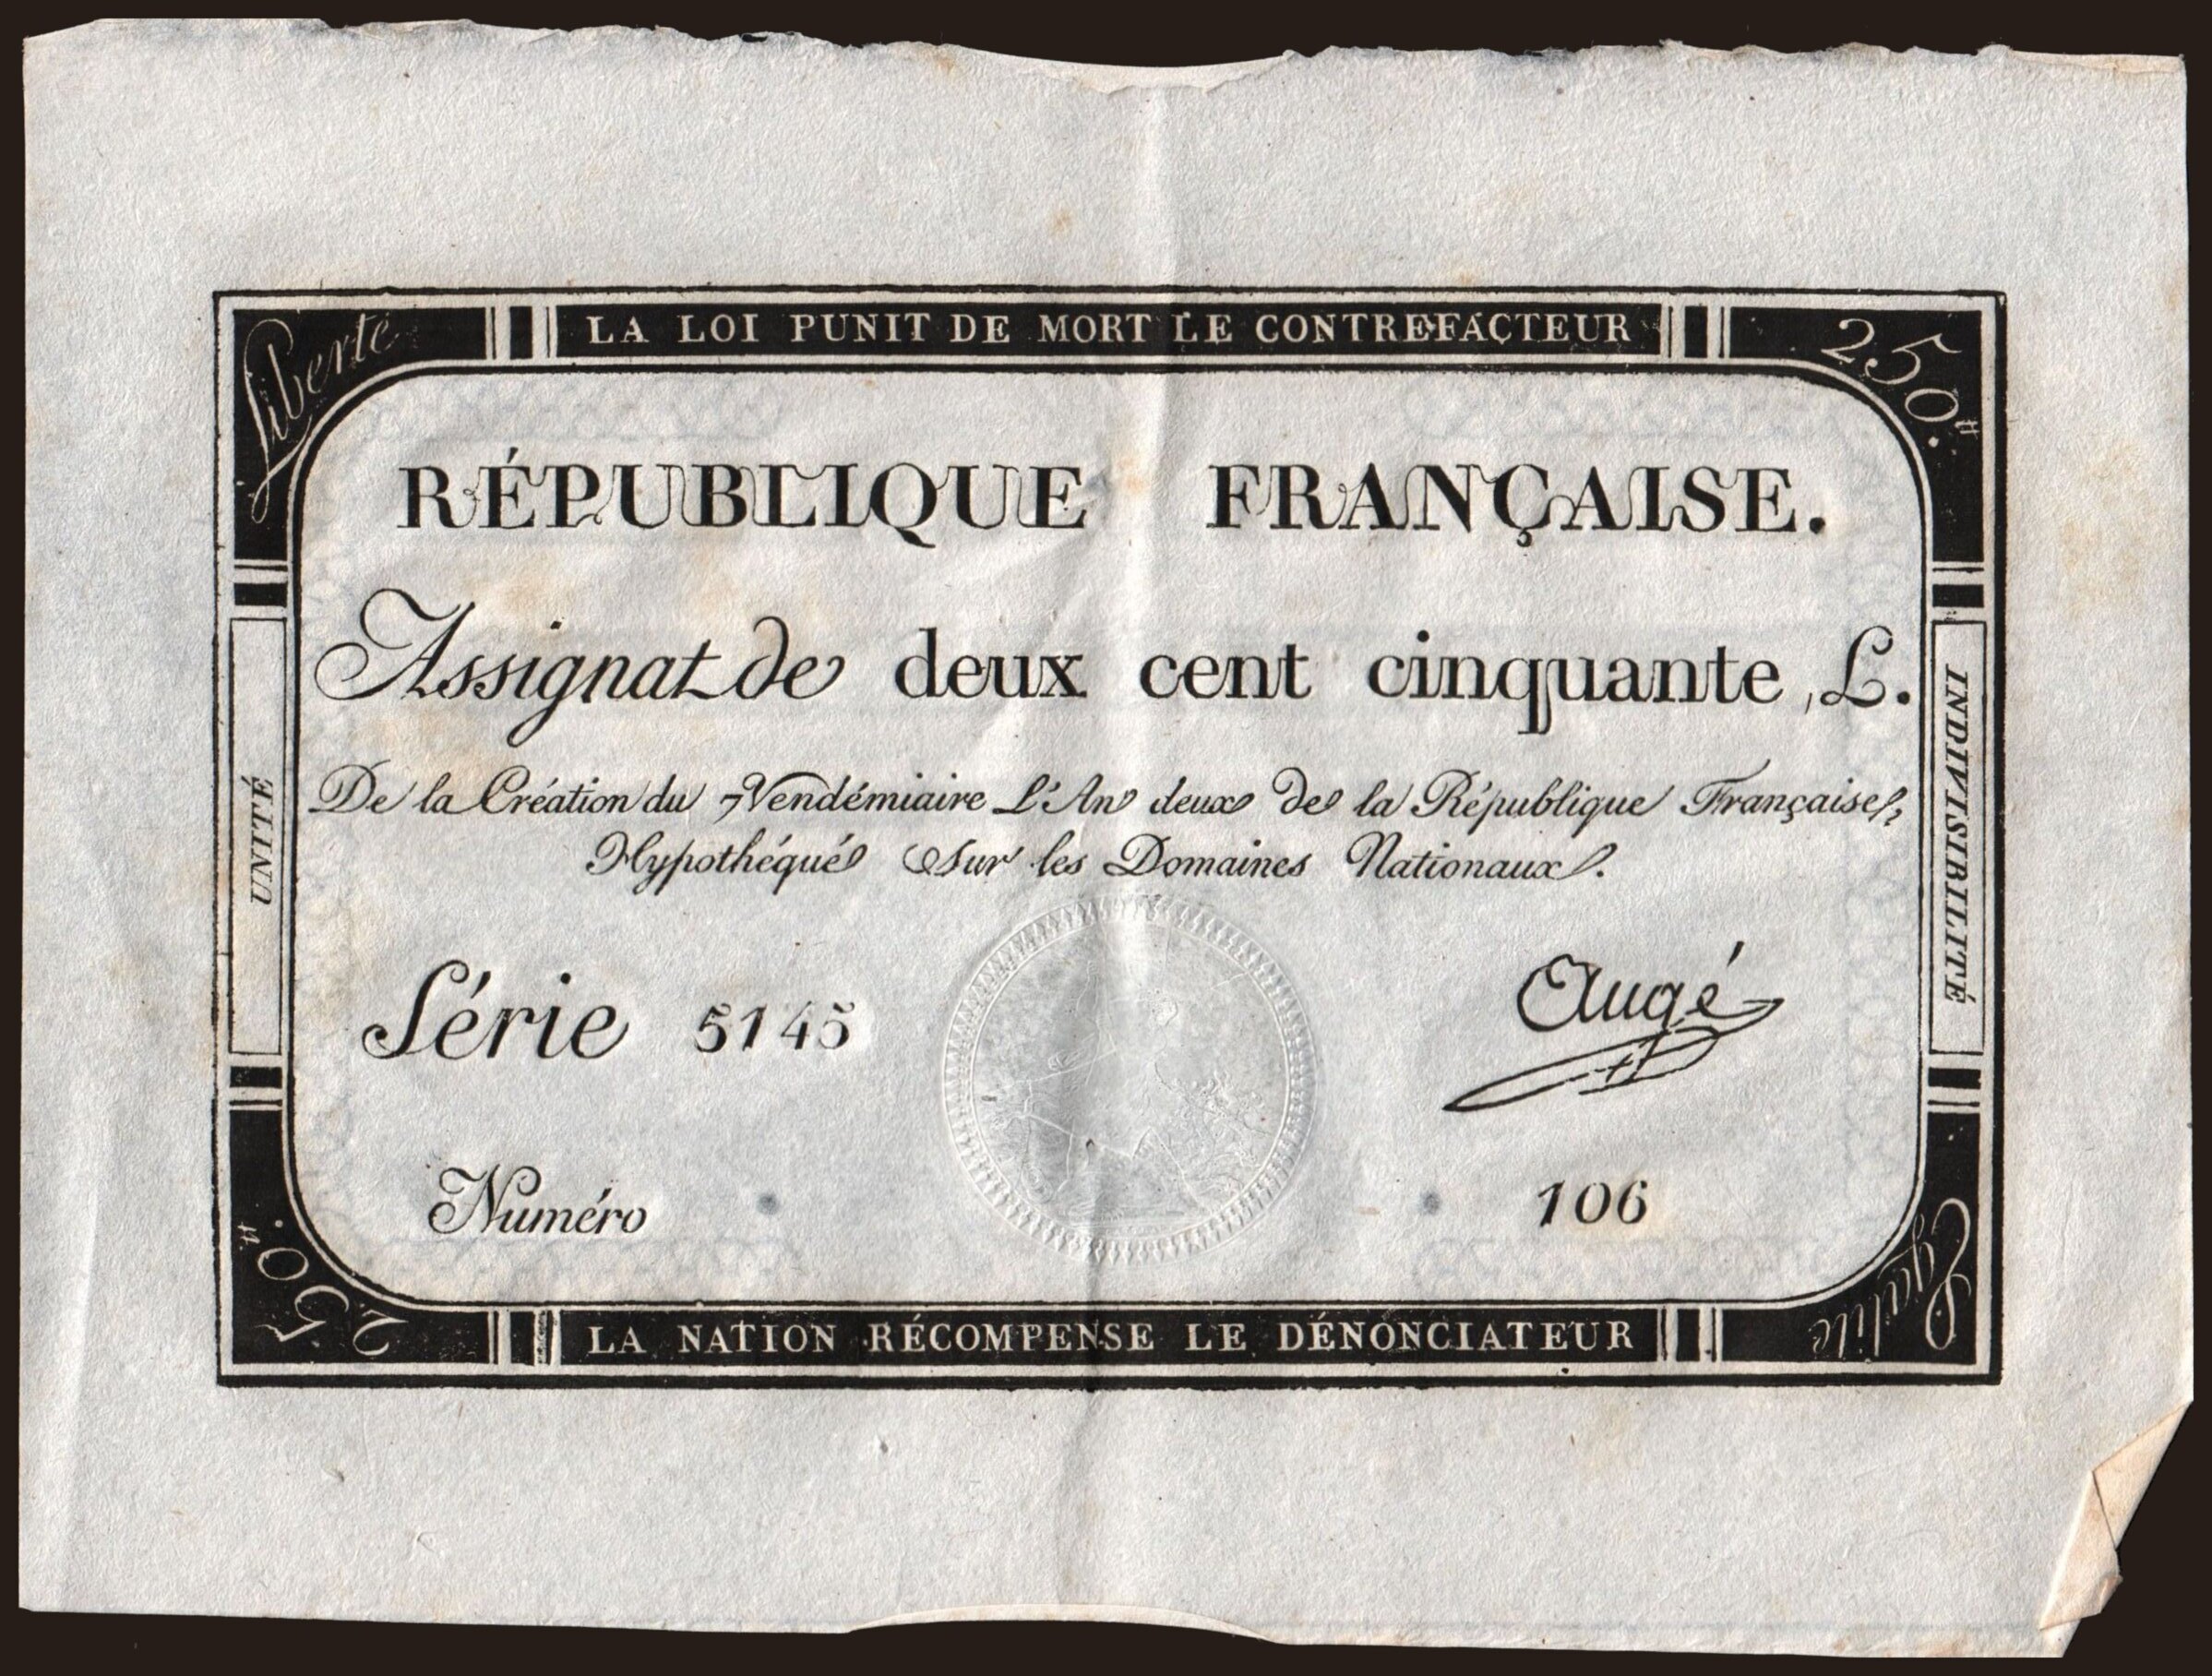 Liberté
LA LOI PUNIT DE MORT LE CONTREFACTEUR
250.
RÉPUBLIQUE FRANÇAISE.
Assignat de deux cent cinquante L.
De la Création du 7 Vendémiaire L'An deux de la République Française,
Hypothéqué Sur les Domaines Nationaux.
UNITÉ
INDIVISIBILITÉ
Série 5145
Augé
Numéro 106
250.
LA NATION RÉCOMPENSE LE DÉNONCIATEUR
Egalité